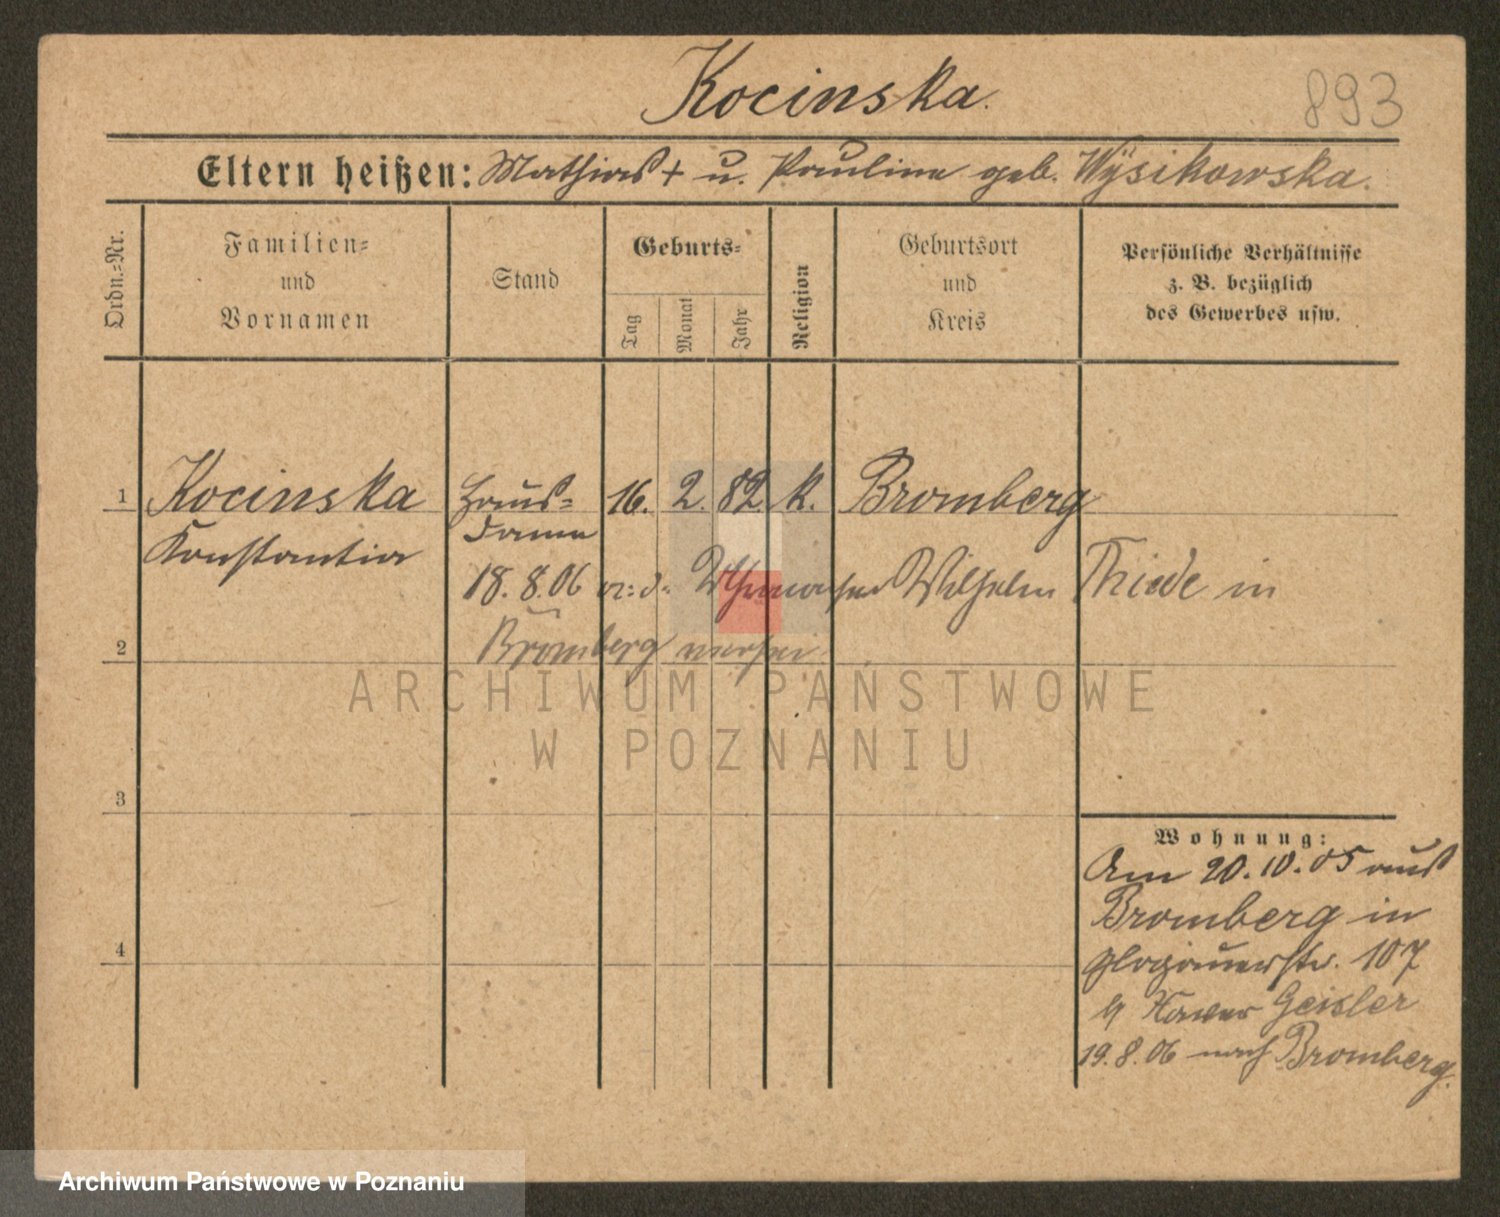 Kocinska.
893
Eltern heißen: Mathias + u. Pauline geb. Wysikowska.
Ordn.-Nr.
Familien-
und
Vornamen
Stand
Geburts-
Tag
Monat
Jahr
Religion
Geburtsort
und
Kreis
Persönliche Verhältnisse
z. B. bezüglich
des Gewerbes usw.
1 Kocinska Haus- 16. 2. 82. k. Bromberg
Konstantia Dame
18. 8. 06 a: d: Wilhelm Thiede in
Bromberg
2
ARCHIWUM PAŃSTWOWE
W POZNANIU
3
Wohnung:
Am 20. 10. 05 aus
Bromberg in
Glogauerstr. 107
4
Geisler
19. 8. 06 nach Bromberg.
Archiwum Państwowe w Poznaniu